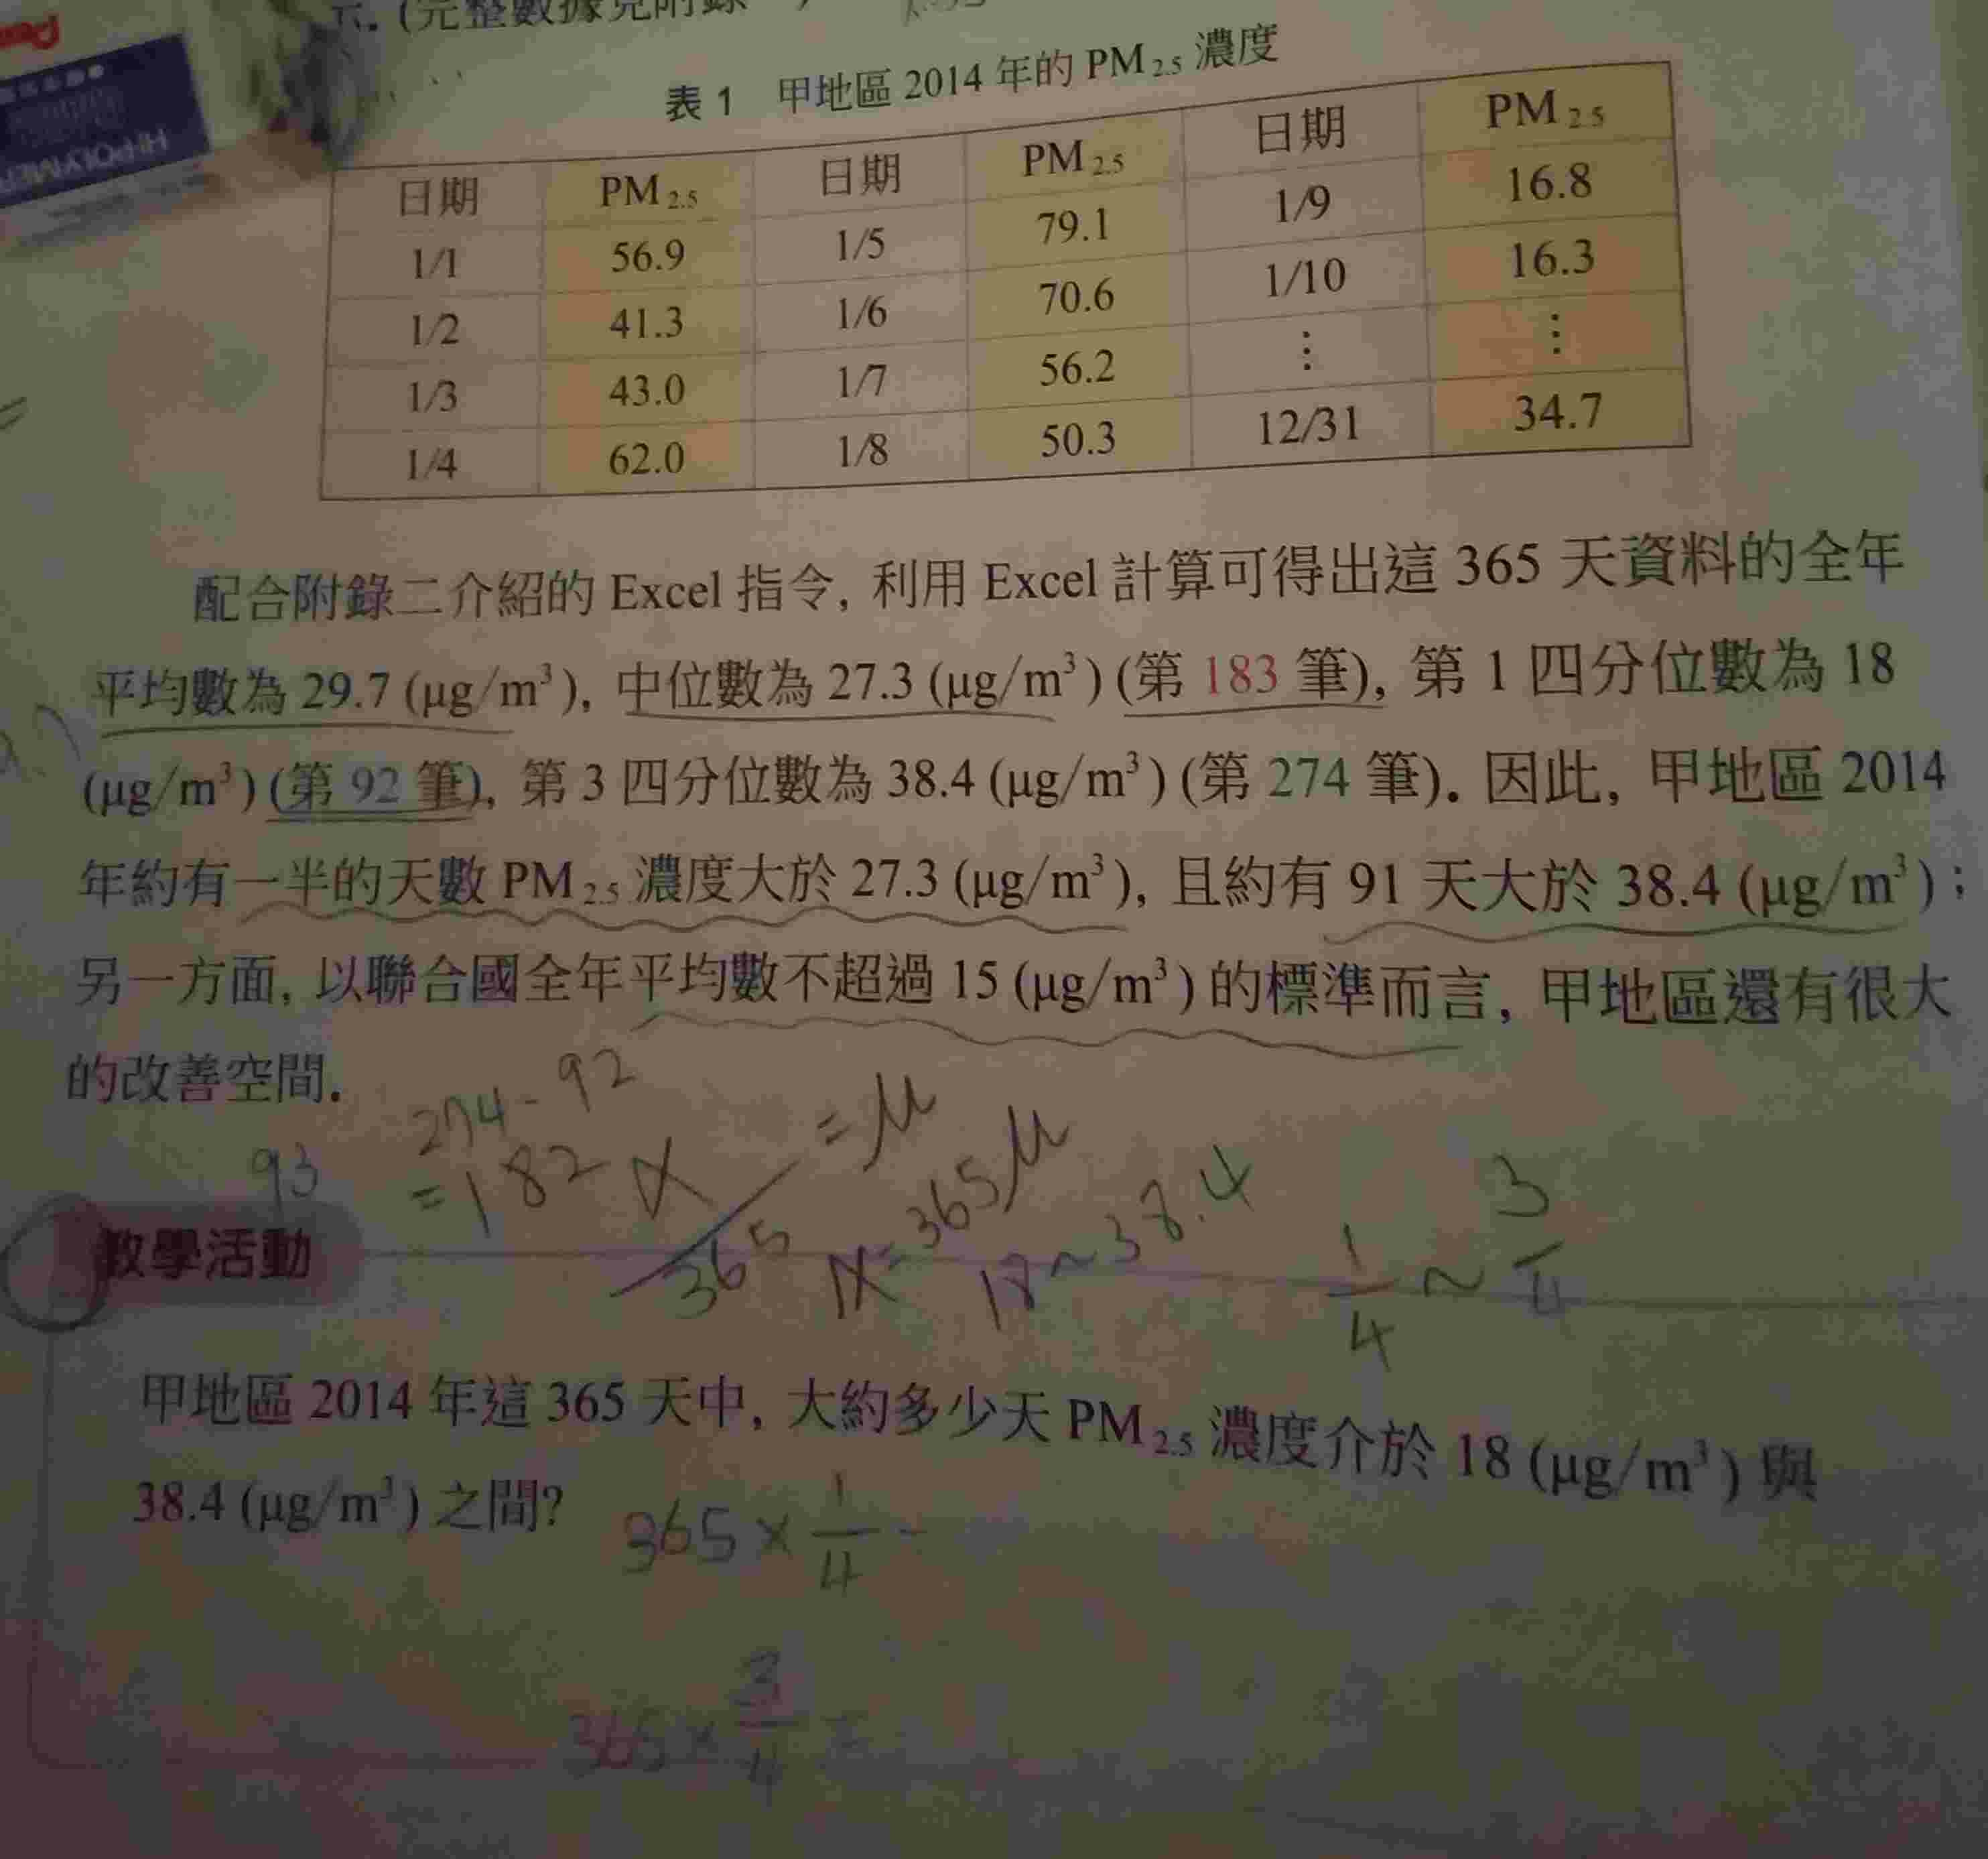 示. (完整數據見附錄一)
表 1 甲地區 2014 年的 PM2.5 濃度
日期 PM2.5 日期 PM2.5 日期 PM2.5
1/1 56.9 1/5 79.1 1/9 16.8
1/2 41.3 1/6 70.6 1/10 16.3
1/3 43.0 1/7 56.2 ⋮ ⋮
1/4 62.0 1/8 50.3 12/31 34.7
配合附錄二介紹的 Excel 指令, 利用 Excel 計算可得出這 365 天資料的全年
平均數為 29.7 (μg/m³), 中位數為 27.3 (μg/m³) (第 183 筆), 第 1 四分位數為 18
(μg/m³) (第 92 筆), 第 3 四分位數為 38.4 (μg/m³) (第 274 筆). 因此, 甲地區 2014
年約有一半的天數 PM2.5 濃度大於 27.3 (μg/m³), 且約有 91 天大於 38.4 (μg/m³);
另一方面, 以聯合國全年平均數不超過 15 (μg/m³) 的標準而言, 甲地區還有很大
的改善空間.
274-92
=182
93
x/365 = μ
x=365μ
18~38.4
1/4 ~ 3/4
教學活動
甲地區 2014 年這 365 天中, 大約多少天 PM2.5 濃度介於 18 (μg/m³) 與
38.4 (μg/m³) 之間?
365 × 1/4 -
365 × 3/4 =
HI-POLYMER